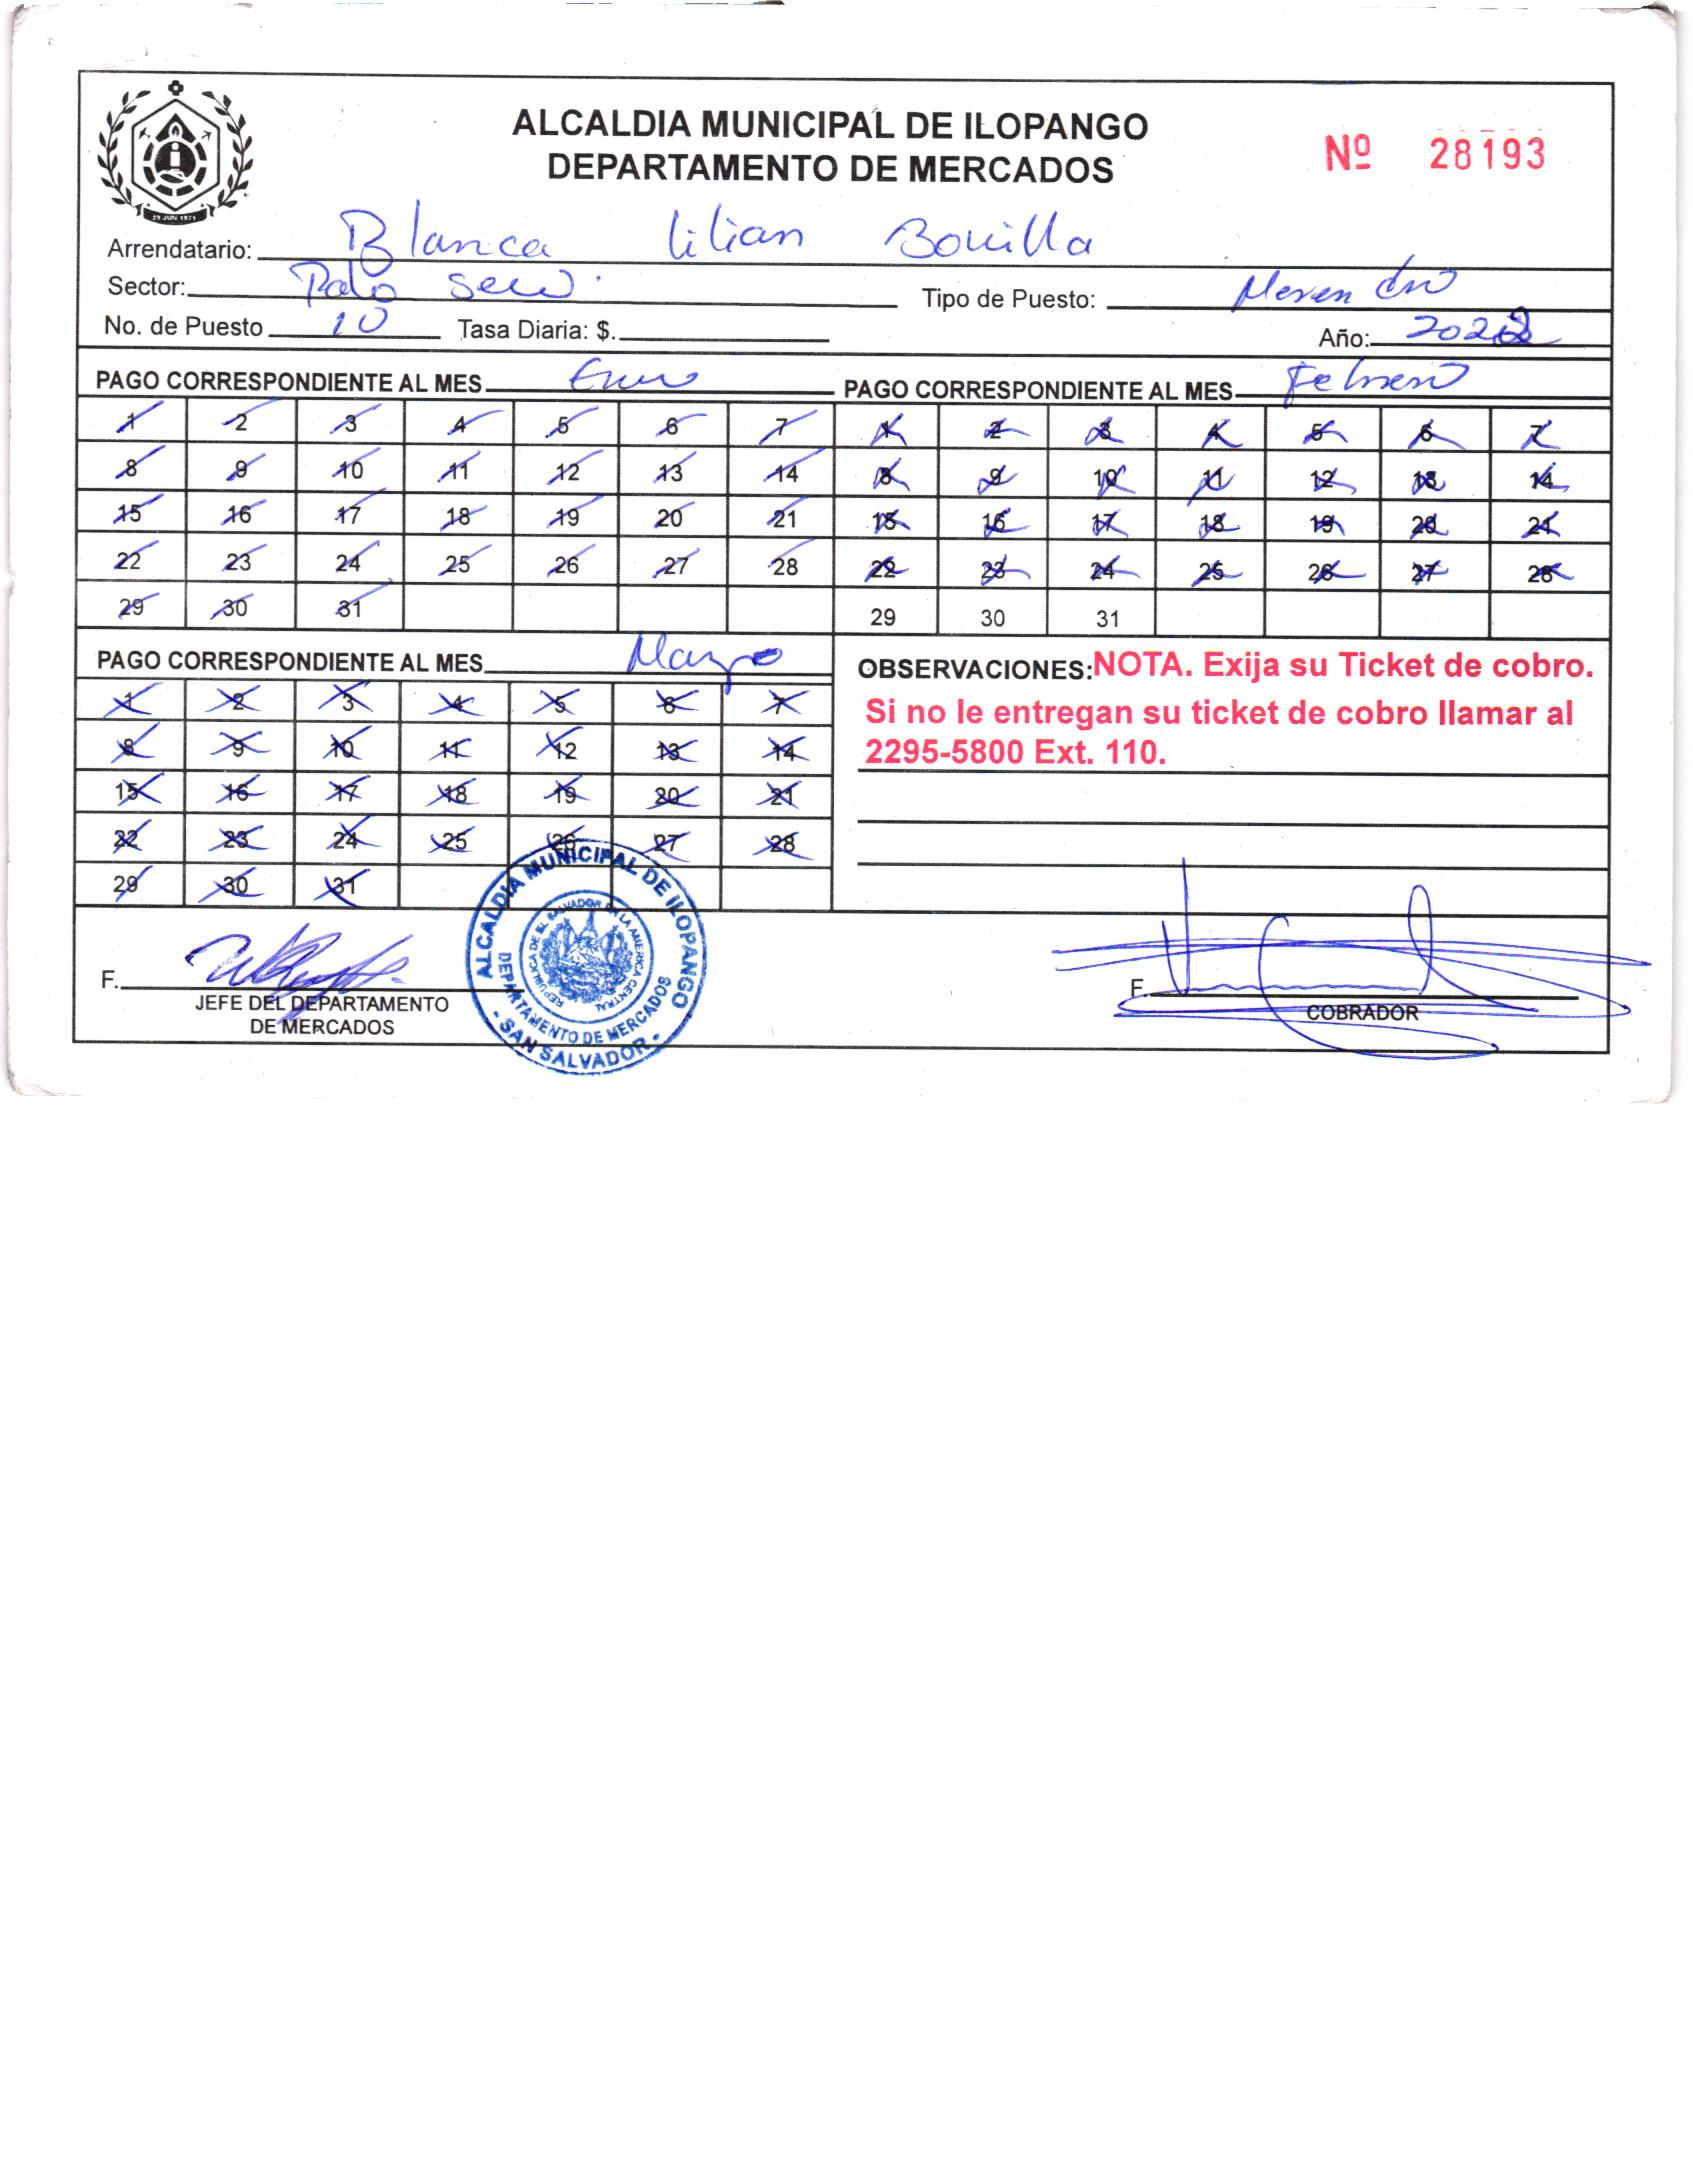 ALCALDIA MUNICIPAL DE ILOPANGO
DEPARTAMENTO DE MERCADOS
Nº 28193
29 JUN 1971
Arrendatario: Blanca Lilian Bonilla
Sector: Palo Seco.
Tipo de Puesto: Meren
No. de Puesto 10 Tasa Diaria: $.
Año: 2022
PAGO CORRESPONDIENTE AL MES Enero
1 2 3 4 5 6 7
8 9 10 11 12 13 14
15 16 17 18 19 20 21
22 23 24 25 26 27 28
29 30 31
PAGO CORRESPONDIENTE AL MES Febrero
1 2 3 4 5 6 7
8 9 10 11 12 13 14
15 16 17 18 19 20 21
22 23 24 25 26 27 28
29 30 31
PAGO CORRESPONDIENTE AL MES Marzo
1 2 3 4 5 6 7
8 9 10 11 12 13 14
15 16 17 18 19 20 21
22 23 24 25 26 27 28
29 30 31
OBSERVACIONES: NOTA. Exija su Ticket de cobro.
Si no le entregan su ticket de cobro llamar al
2295-5800 Ext. 110.
F.
JEFE DEL DEPARTAMENTO
DE MERCADOS
ALCALDIA MUNICIPAL DE ILOPANGO
DEPARTAMENTO DE MERCADOS
- SAN SALVADOR -
REPUBLICA DE EL SALVADOR EN LA AMERICA CENTRAL
F.
COBRADOR